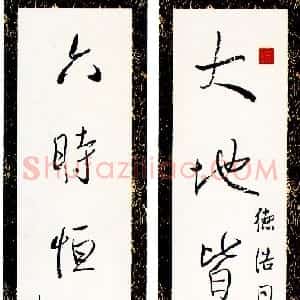 大地皆
德浩
六時恒
ShufaZidian.COM